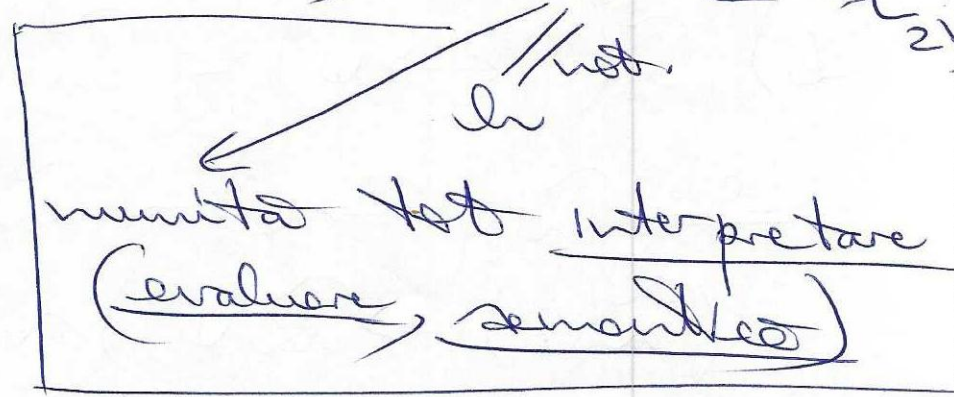 2)
// not.
h
numită tot interpretare
(evaluare, semantică)